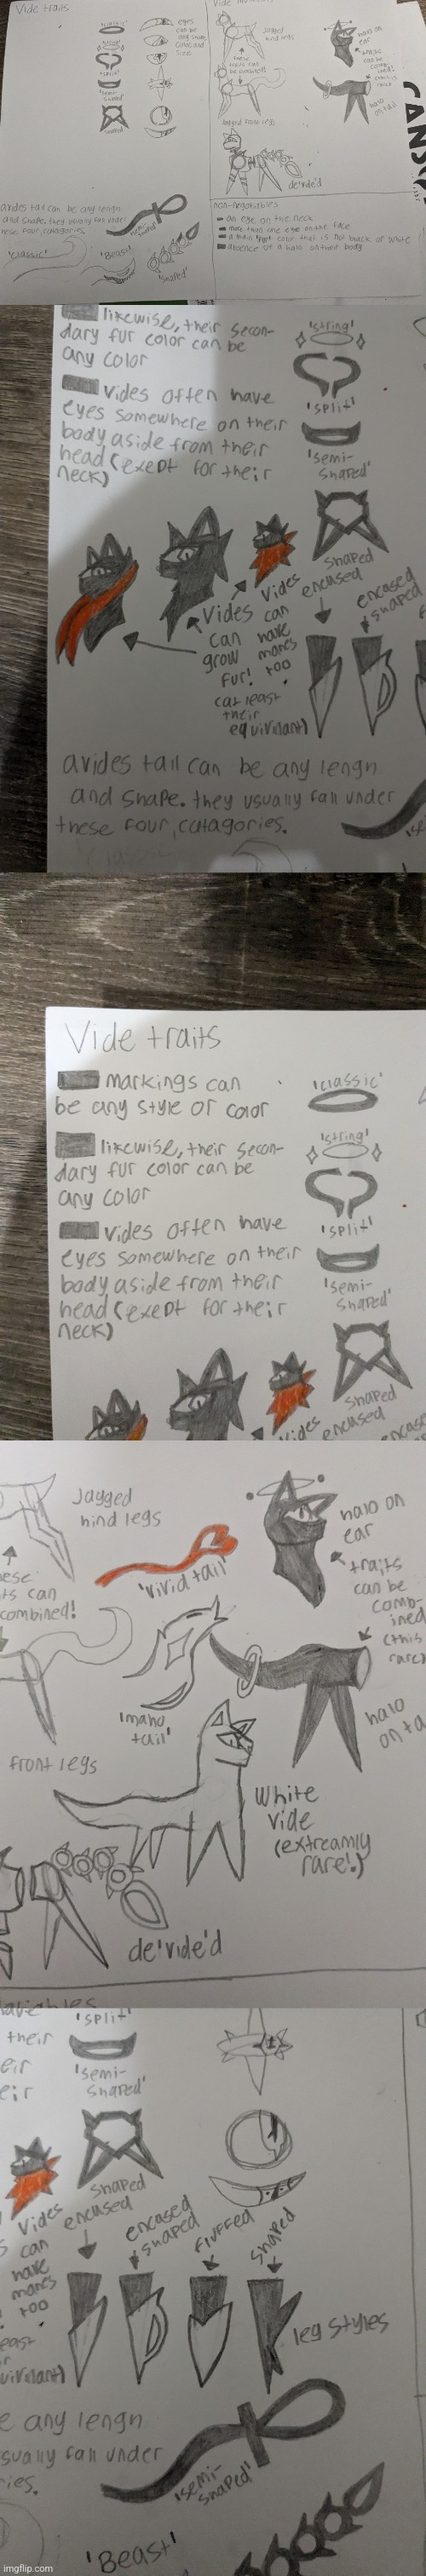 Vide traits
'classic'
'string'
'split'
'semi-
shaped'
shaped
eyes
can be
any
color and
size
avides tail can be any lengn
and shape. they usually fall under
these four, catagories.
'classic'
'Beast'
'semi-
shaped'
'shaped'
Vide
Jagged
hind legs
these
traits can
be combined!
Jagged front legs
de'vide'd
halo on
ear
traits
can be
combined
(this is
rare)
halo
on tail
CANS
non-negotiables
an eye on the neck
more than one eye on the face
a main fur color that is not black or white
absence of a halo on their body
likewise, their secon-
dary fur color can be
any color
Vides often have
eyes somewhere on their
body aside from their
head (exept for their
neck)
'string'
'split'
'semi-
shaped'
shaped
encused
encased
shaped
Vides
can
grow
fur!
(at least
their
equivilant)
Vides
can
have
manes
too
avides tail can be any lengn
and shape. they usually fall under
these four, catagories.
Vide traits
markings can
be any style or color
likewise, their secon-
dary fur color can be
any color
Vides often have
eyes somewhere on their
body aside from their
head (exept for their
neck)
'classic'
'string'
'split'
'semi-
shaped'
shaped
Vides
encused
encase
Jagged
hind legs
ese
ts can
combined!
'vivid tail'
'mano
tail'
front legs
halo on
ear
traits
can be
comb-
ined
(this
rare)
halo
on ta
White
Vide
(extreamly
rare!)
de'vide'd
their
eir
eir
'split'
'semi-
shaped'
shaped
encused
encased
shaped
fluffed
shaped
Vides
can
have
manes
too
east
ir
uivilant)
leg styles
e any lengn
sually fall under
ies.
'semi-
shaped'
'Beast'
imgflip.com